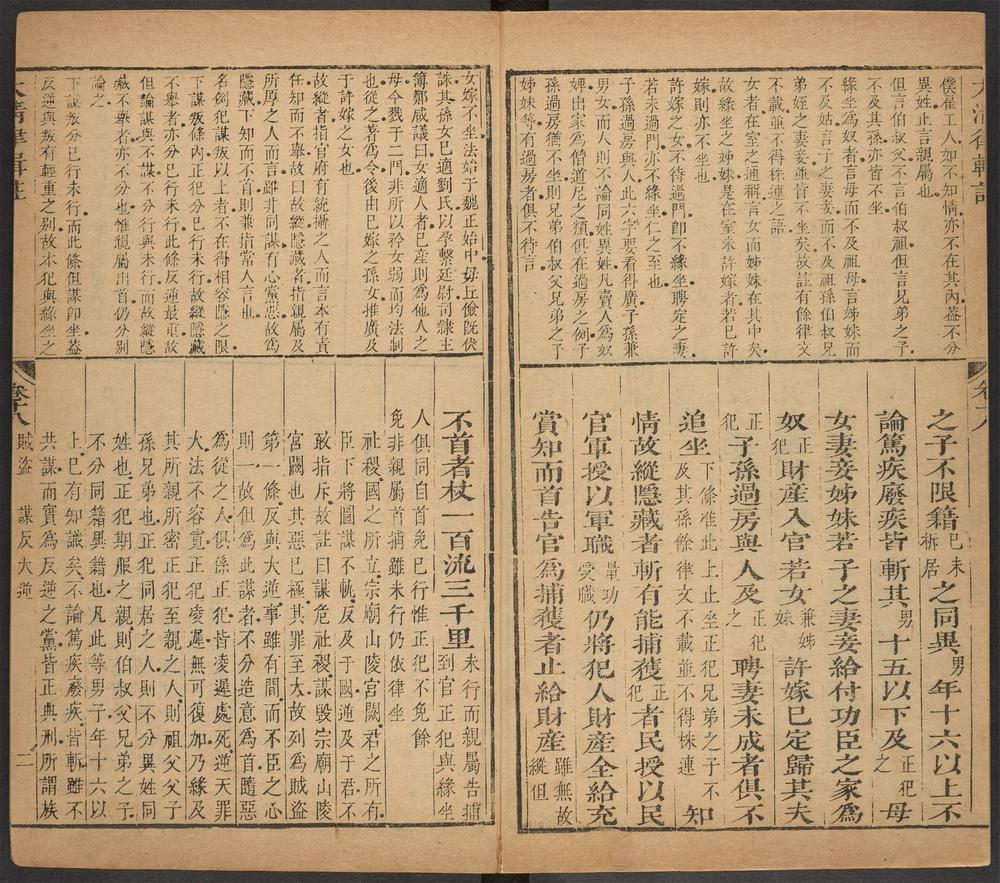 大清律輯註
僕雇工人如不知情亦不在其內葢不分
異姓止言親屬也
但言伯叔父不言伯叔祖但言兄弟之子
不及其孫亦皆不坐
緣坐為奴者言母而不及祖母言姊妹而
不及姑言子之妻妾而不及祖孫伯叔兄
弟姪之妻妾並皆不坐矣故註有餘律文
不載並不得株連之語
女者在室之通稱言女而姊妹在其中矣
故緣坐之姊妹是在室未許嫁者若已許
嫁則亦不坐也
許嫁之女不待過門卽不緣坐聘定之妻
若未過門亦不緣坐仁之至也
子孫過房與人此六字要看得廣子孫兼
男女而人則不論同姓異姓凡賣人為奴
婢出家為僧道尼之類俱在過房之例子
孫過房猶不坐則兄弟伯叔父兄弟之子
姊妹等有過房者俱不待言
卷十八
之子不限籍已未析居之同異男年十六以上不
論篤疾廢疾皆斬其男十五以下及正犯之母
女妻妾姊妹若子之妻妾給付功臣之家為
奴正犯財產入官若女兼姊妹許嫁已定歸其夫
正犯子孫過房與人及正犯之聘妻未成者俱不
追坐下條准此上止坐正犯兄弟之子不及其孫餘律文不載並不得株連知
情故縱隱藏者斬有能捕獲正犯者民授以民
官軍授以軍職量功受職仍將犯人財產全給充
賞知而首告官為捕獲者止給財產雖無故縱但
女嫁不坐法始于魏正始中毋丘儉既伏
誅其孫女已適劉氏以孕繫廷尉司隸主
簿鄭咸議曰女適人者已產則為他人之
母今戮于二門非所以矜女弱而均法制
也從之著為令後由已嫁之孫女推廣及
于許嫁之女也
故縱者指官府有統攝之人而言本有責
任知而不舉故曰故縱隱藏者指親屬及
所厚之人而言雖非同謀有心黨惡故為
隱藏下知而不首則兼指常人言也
名例犯謀叛以上者不在得相容隱之限
下謀叛條內正犯分已行未行故縱隱藏
不舉者亦分已行未行此條反逆最重故
但論謀與不謀不分行與未行而故縱隱
藏不舉者亦不分也惟親屬出首仍分別
論之
下謀叛分已行未行而此條但謀卽坐葢
反逆與叛有輕重之別故本犯與緣坐之
不首者杖一百流三千里未行而親屬告捕到官正犯與緣坐
人俱同自首免已行惟正犯不免餘
免非親屬首捕雖未行仍依律坐
社稷國之所立宗廟山陵宮闕君之所有
臣下將圖謀不軌反及于國逆及于君不
敢指斥故註曰謀危社稷謀毀宗廟山陵
宮闕也其惡已極其罪至大故列為賊盜
第一條反與大逆事雖有間而不臣之心
則一故但共謀此謀者不分造意為首隨惡
為從之人俱係正犯皆凌遲處死逆天罪
大法不容寬正犯凌遲無可復加乃緣及
其所親所密正犯至親之人則祖父父子
孫兄弟也正犯同居之人則不分異姓同
姓也正犯期服之親則伯叔父兄弟之子
不分同籍異籍也凡此等男子年十六以
上已有知識矣不論篤疾廢疾皆斬雖不
共謀而實為反逆之黨皆正典刑所謂族
大清律輯註
卷十八
賊盜
謀反大逆
二